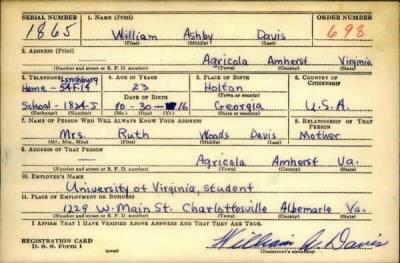 SERIAL NUMBER 1. NAME (Print) ORDER NUMBER
1865 William Ashby Davis 698
(First) (Middle) (Last)
2. ADDRESS (Print)
Agricola Amherst Virginia
(Number and street or R. F. D. number) (Town) (County) (State)
3. TELEPHONE 4. AGE IN YEARS 5. PLACE OF BIRTH 6. COUNTRY OF CITIZENSHIP
Lynchburg
Home - 23 Holton
DATE OF BIRTH (Town or county)
School - 1824-J 10 - 30 - 16 Georgia U.S.A.
(Exchange) (Number) (Mo.) (Day) (Yr.) (State or country)
7. NAME OF PERSON WHO WILL ALWAYS KNOW YOUR ADDRESS 8. RELATIONSHIP OF THAT PERSON
Mrs. Ruth Woods Davis Mother
(Mr., Mrs., Miss) (First) (Middle) (Last)
9. ADDRESS OF THAT PERSON
Agricola Amherst Va.
(Number and street or R. F. D. number) (Town) (County) (State)
10. EMPLOYER'S NAME
University of Virginia, student
11. PLACE OF EMPLOYMENT OR BUSINESS
1229 W. Main St. Charlottesville Albemarle Va.
(Number and street or R. F. D. number) (Town) (County) (State)
I AFFIRM THAT I HAVE VERIFIED ABOVE ANSWERS AND THAT THEY ARE TRUE.
REGISTRATION CARD
D. S. S. Form 1 (over) William A. Davis
(Registrant's signature)